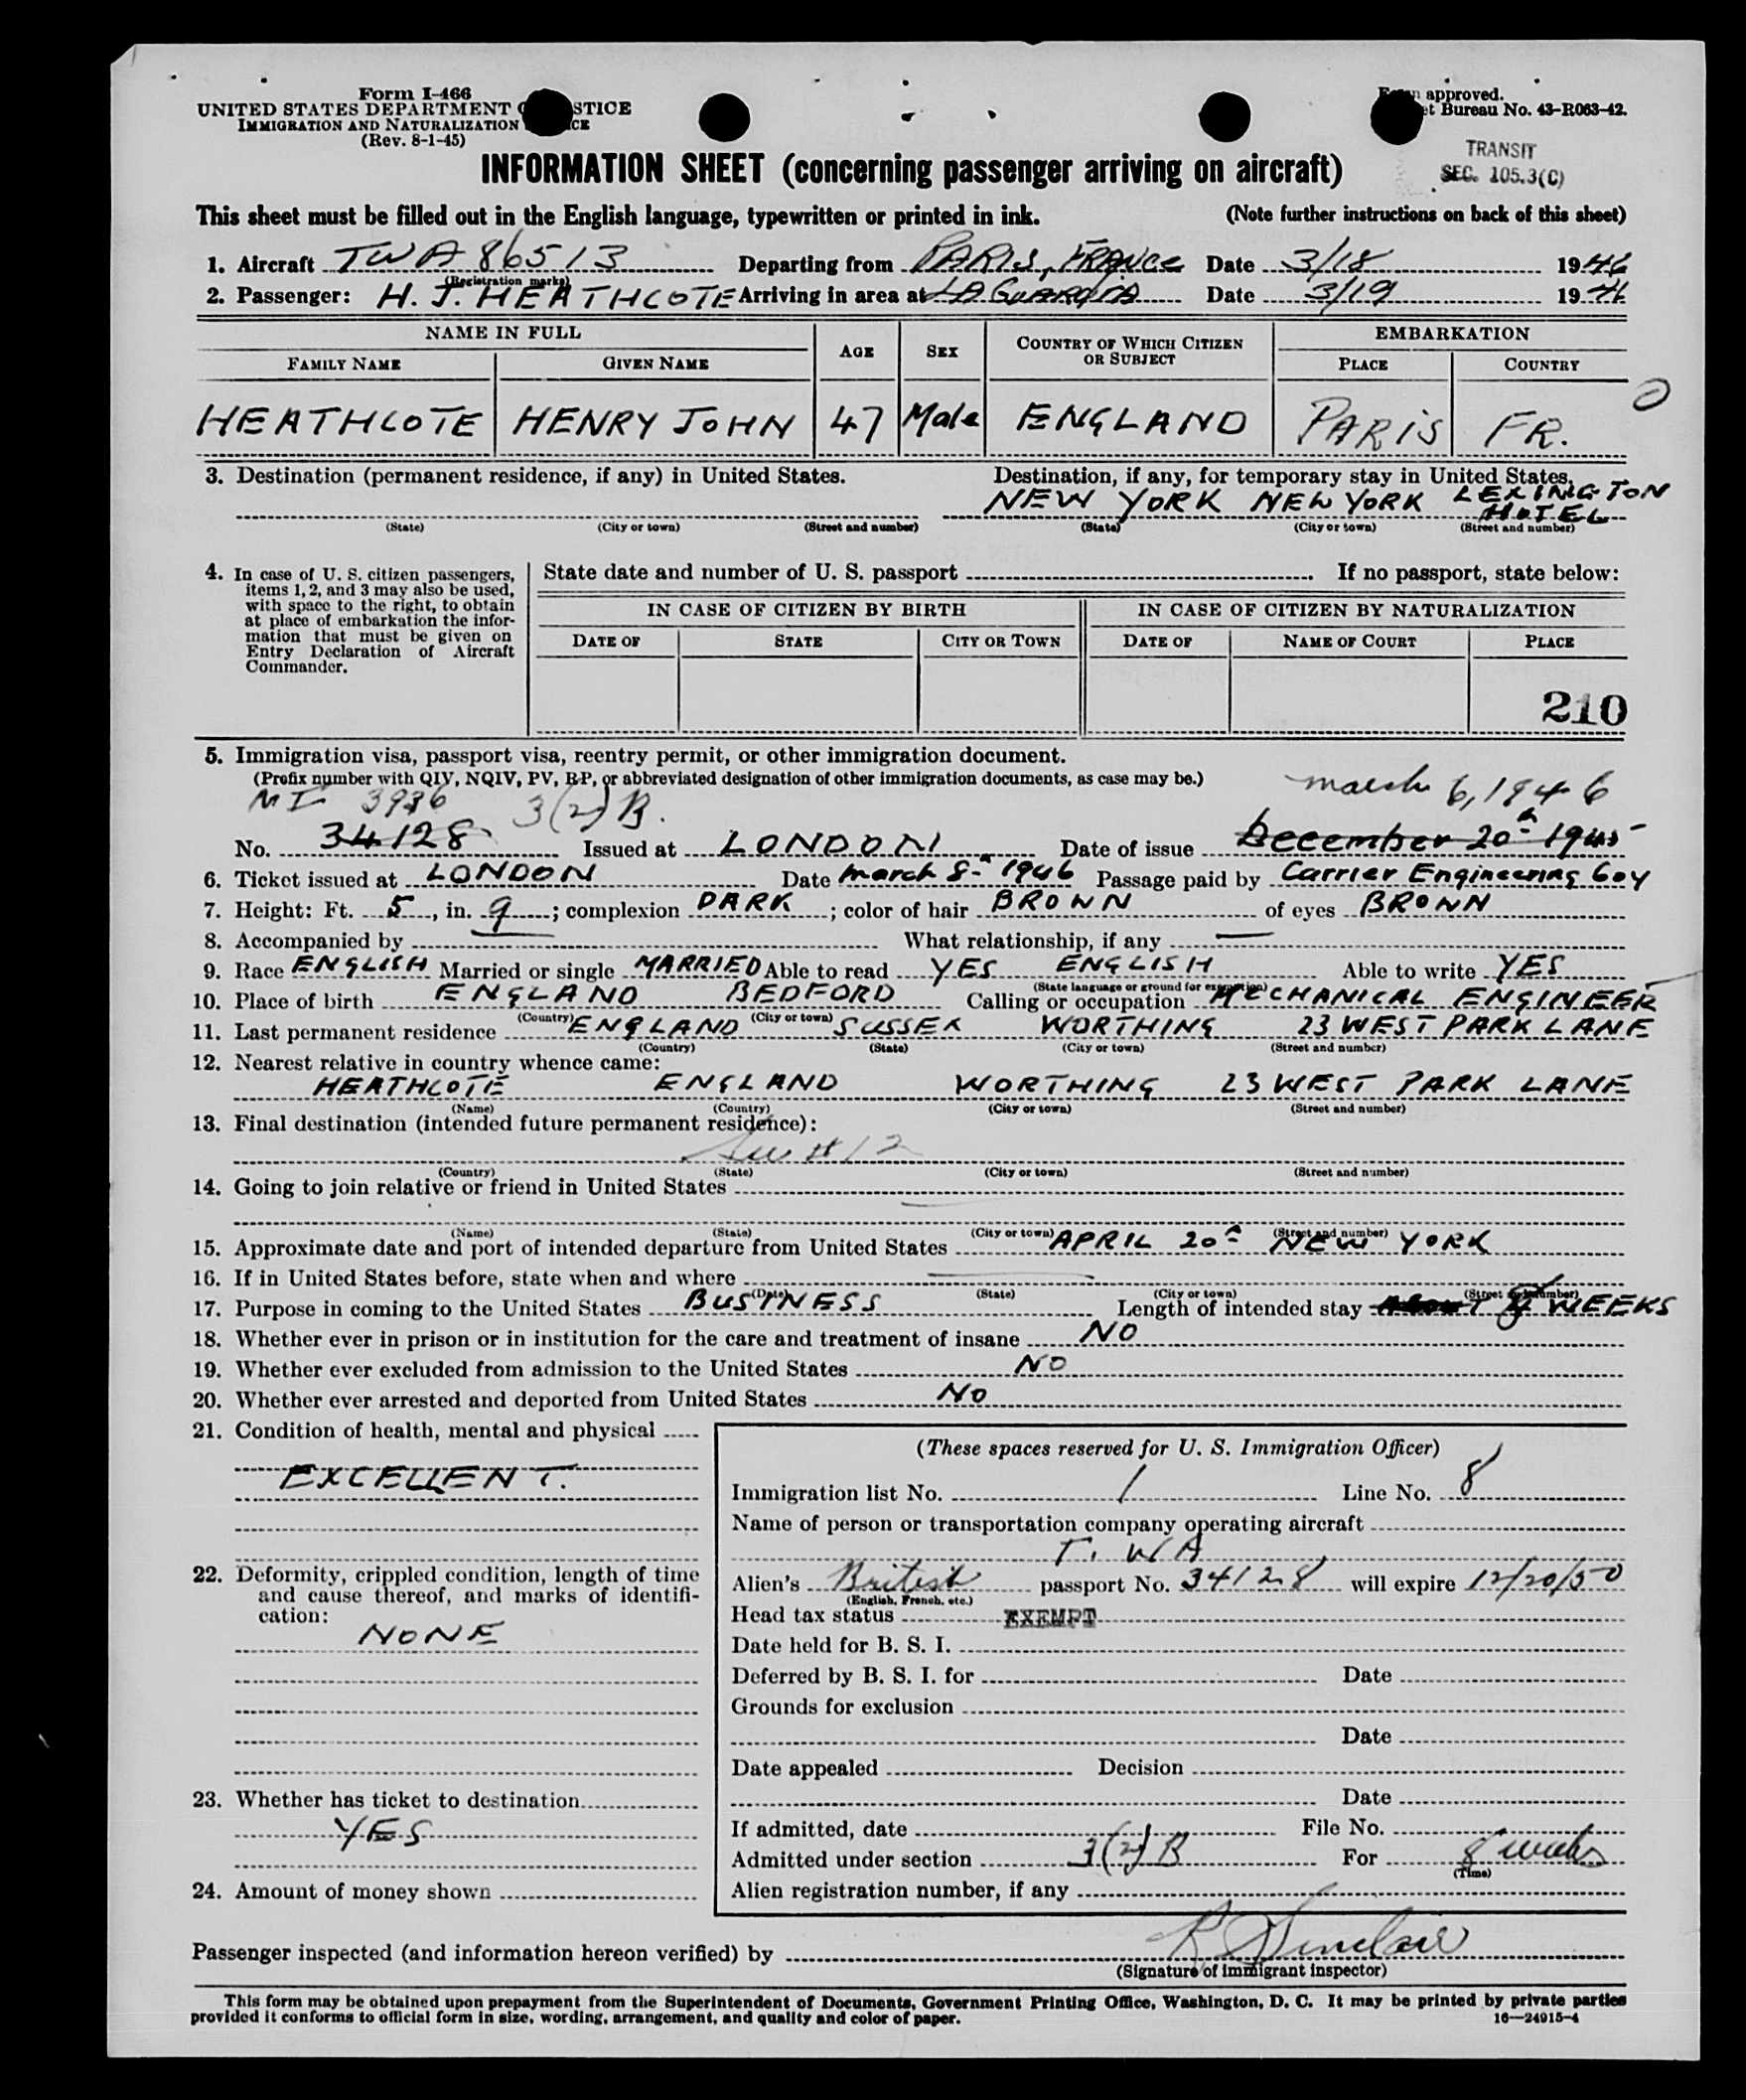 Form I-466
UNITED STATES DEPARTMENT STICE
IMMIGRATION AND NATURALIZATION CE
(Rev. 8-1-45)
approved.
Bureau No. 43-R063-42.
TRANSIT
SEC. 105.3(C)
INFORMATION SHEET (concerning passenger arriving on aircraft)
This sheet must be filled out in the English language, typewritten or printed in ink. (Note further instructions on back of this sheet)
1. Aircraft TWA 86513 Departing from PARIS, FRANCE Date 3/18 1946
(Registration marks)
2. Passenger: H. J. HEATHCOTE Arriving in area at LA GUARDIA Date 3/19 1946
NAME IN FULL AGE SEX COUNTRY OF WHICH CITIZEN OR SUBJECT EMBARKATION
FAMILY NAME GIVEN NAME PLACE COUNTRY
HEATHCOTE HENRY JOHN 47 Male ENGLAND PARIS FR.
3. Destination (permanent residence, if any) in United States. Destination, if any, for temporary stay in United States.
NEW YORK NEW YORK LEXINGTON HOTEL
(State) (City or town) (Street and number) (State) (City or town) (Street and number)
4. In case of U. S. citizen passengers, items 1, 2, and 3 may also be used, with space to the right, to obtain at place of embarkation the information that must be given on Entry Declaration of Aircraft Commander.
State date and number of U. S. passport If no passport, state below:
IN CASE OF CITIZEN BY BIRTH IN CASE OF CITIZEN BY NATURALIZATION
DATE OF STATE CITY OR TOWN DATE OF NAME OF COURT PLACE
210
5. Immigration visa, passport visa, reentry permit, or other immigration document.
(Prefix number with QIV, NQIV, PV, RP, or abbreviated designation of other immigration documents, as case may be.)
3(2)B. March 6, 1946
No. 34128 Issued at LONDON Date of issue December 20th 1945
6. Ticket issued at LONDON Date March 8th 1946 Passage paid by Carrier Engineering Coy
7. Height: Ft. 5, in. 9; complexion DARK; color of hair BROWN of eyes BROWN
8. Accompanied by What relationship, if any
9. Race ENGLISH Married or single MARRIED Able to read YES ENGLISH Able to write YES
(State language or ground for exemption)
10. Place of birth ENGLAND BEDFORD Calling or occupation MECHANICAL ENGINEER
(Country) (City or town)
11. Last permanent residence ENGLAND SUSSEX WORTHING 23 WEST PARK LANE
(Country) (State) (City or town) (Street and number)
12. Nearest relative in country whence came:
HEATHCOTE ENGLAND WORTHING 23 WEST PARK LANE
(Name) (Country) (City or town) (Street and number)
13. Final destination (intended future permanent residence):
See # 12
(Country) (State) (City or town) (Street and number)
14. Going to join relative or friend in United States
(Name) (State) (City or town) (Street and number)
15. Approximate date and port of intended departure from United States APRIL 20th NEW YORK
16. If in United States before, state when and where
(Date) (State) (City or town) (Street and number)
17. Purpose in coming to the United States BUSINESS Length of intended stay WEEKS
18. Whether ever in prison or in institution for the care and treatment of insane NO
19. Whether ever excluded from admission to the United States NO
20. Whether ever arrested and deported from United States NO
21. Condition of health, mental and physical
EXCELLENT.
22. Deformity, crippled condition, length of time and cause thereof, and marks of identification:
NONE
23. Whether has ticket to destination
YES
24. Amount of money shown
(These spaces reserved for U. S. Immigration Officer)
Immigration list No. 1 Line No. 8
Name of person or transportation company operating aircraft
T. WA
Alien's British passport No. 34128 will expire 12/20/50
(English, French, etc.)
Head tax status EXEMPT
Date held for B. S. I.
Deferred by B. S. I. for Date
Grounds for exclusion
Date
Date appealed Decision
Date
If admitted, date File No.
Admitted under section 3(2)B For 8 weeks
(Time)
Alien registration number, if any
Passenger inspected (and information hereon verified) by R Sinclair
(Signature of immigrant inspector)
This form may be obtained upon prepayment from the Superintendent of Documents, Government Printing Office, Washington, D. C. It may be printed by private parties
provided it conforms to official form in size, wording, arrangement, and quality and color of paper. 16—24915-4